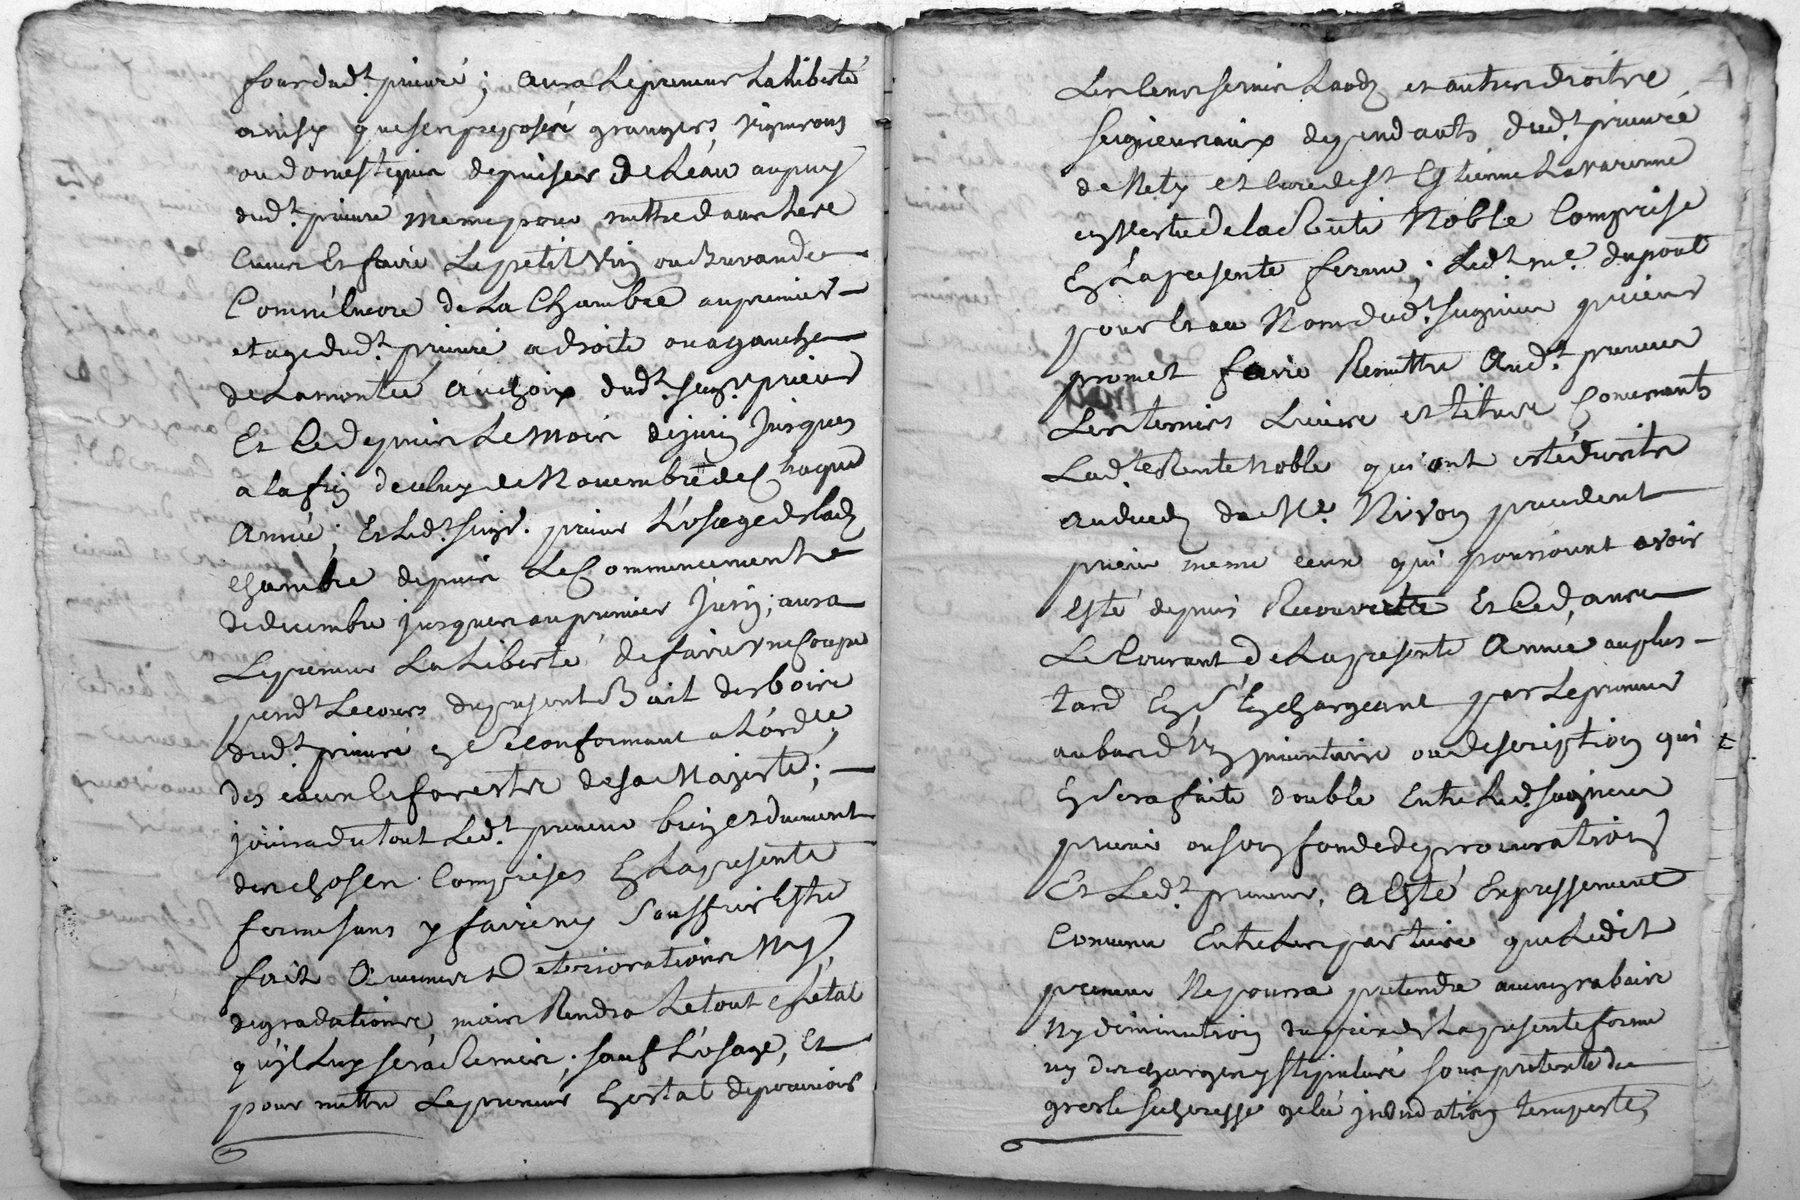 four dud.t prieuré ; aura Le preneur La Liberté
ainsy que ses preposés grangers vignerons
ou domestiques de puiser de Léau au puy
dud.t prieuré meme pour mettre dans Les
Cuves Et faire Le petit vin ou buvande
Comm'éncore de La Chambre au premier
etage dud.t prieuré a droite ou a gauche
de La montéé au choix dud.t seig.r prieur
Et Ce depuis Le mois de juin Jusques
a la fin de celuy de Novembre de Chaque
Année ; Et Led.t seig.r prieur L'ósage de lad.
chambre depuis Le Commencement
de decembre jusques au premier Juin ; aura
Le preneur La Liberté de faire vne Coupe
pend.t Le cours du pñt Bail des bois
dud.t prieuré en se conformant a L'órd.ce
des eaux & forests de sa Majesté ;
jouira du tout Led.t preneur bien et duement
des choses Comprises En La presente
ferme sans y faire ny souffrir Estre
fait Aucunes Deteriorations Ny
degradations, mais Rendra Le tout en l'etat
qu'il Luy sera Remis ; sauf L'ósage, Et
pour mettre Le preneur En estat de percevoir
Les Cens servis Laods et autres droits
seigneuriaux dependants dud.t prieuré
de Nety et Cure de S.t Estienne La varenne
en vertu de la Rente Noble Comprise
En La presente ferme ; Led.t m.e dupont
pour Et au Nom dud.t seigneur prieur
promet faire Remettre Aud.t preneur
Les terriers Lieves et titres Concernants
Lad.te Rente Noble qui ont esté
au deceds de M.e Nivon precedent
prieur meme ceux qui pourroient avoir
esté depuis Recouverts Et Ce dans
Le Courant de La presente Année au plus
tard En s'En chargeant par Le preneur
au bas d'Vn jnventaire ou description qui
En sera faite double Entre Led. seigneur
prieur ou son fondé de procuration
Et Led.t preneur, A Esté Expressement
Convenu Entre Les parties que Ledit
preneur Ne pourra pretendre aucun rabais
Ny diminution du prix de La presente ferme
ny des charges y stipulées sous pretexte de
gresle secheresse gelée jnondation tempeste,